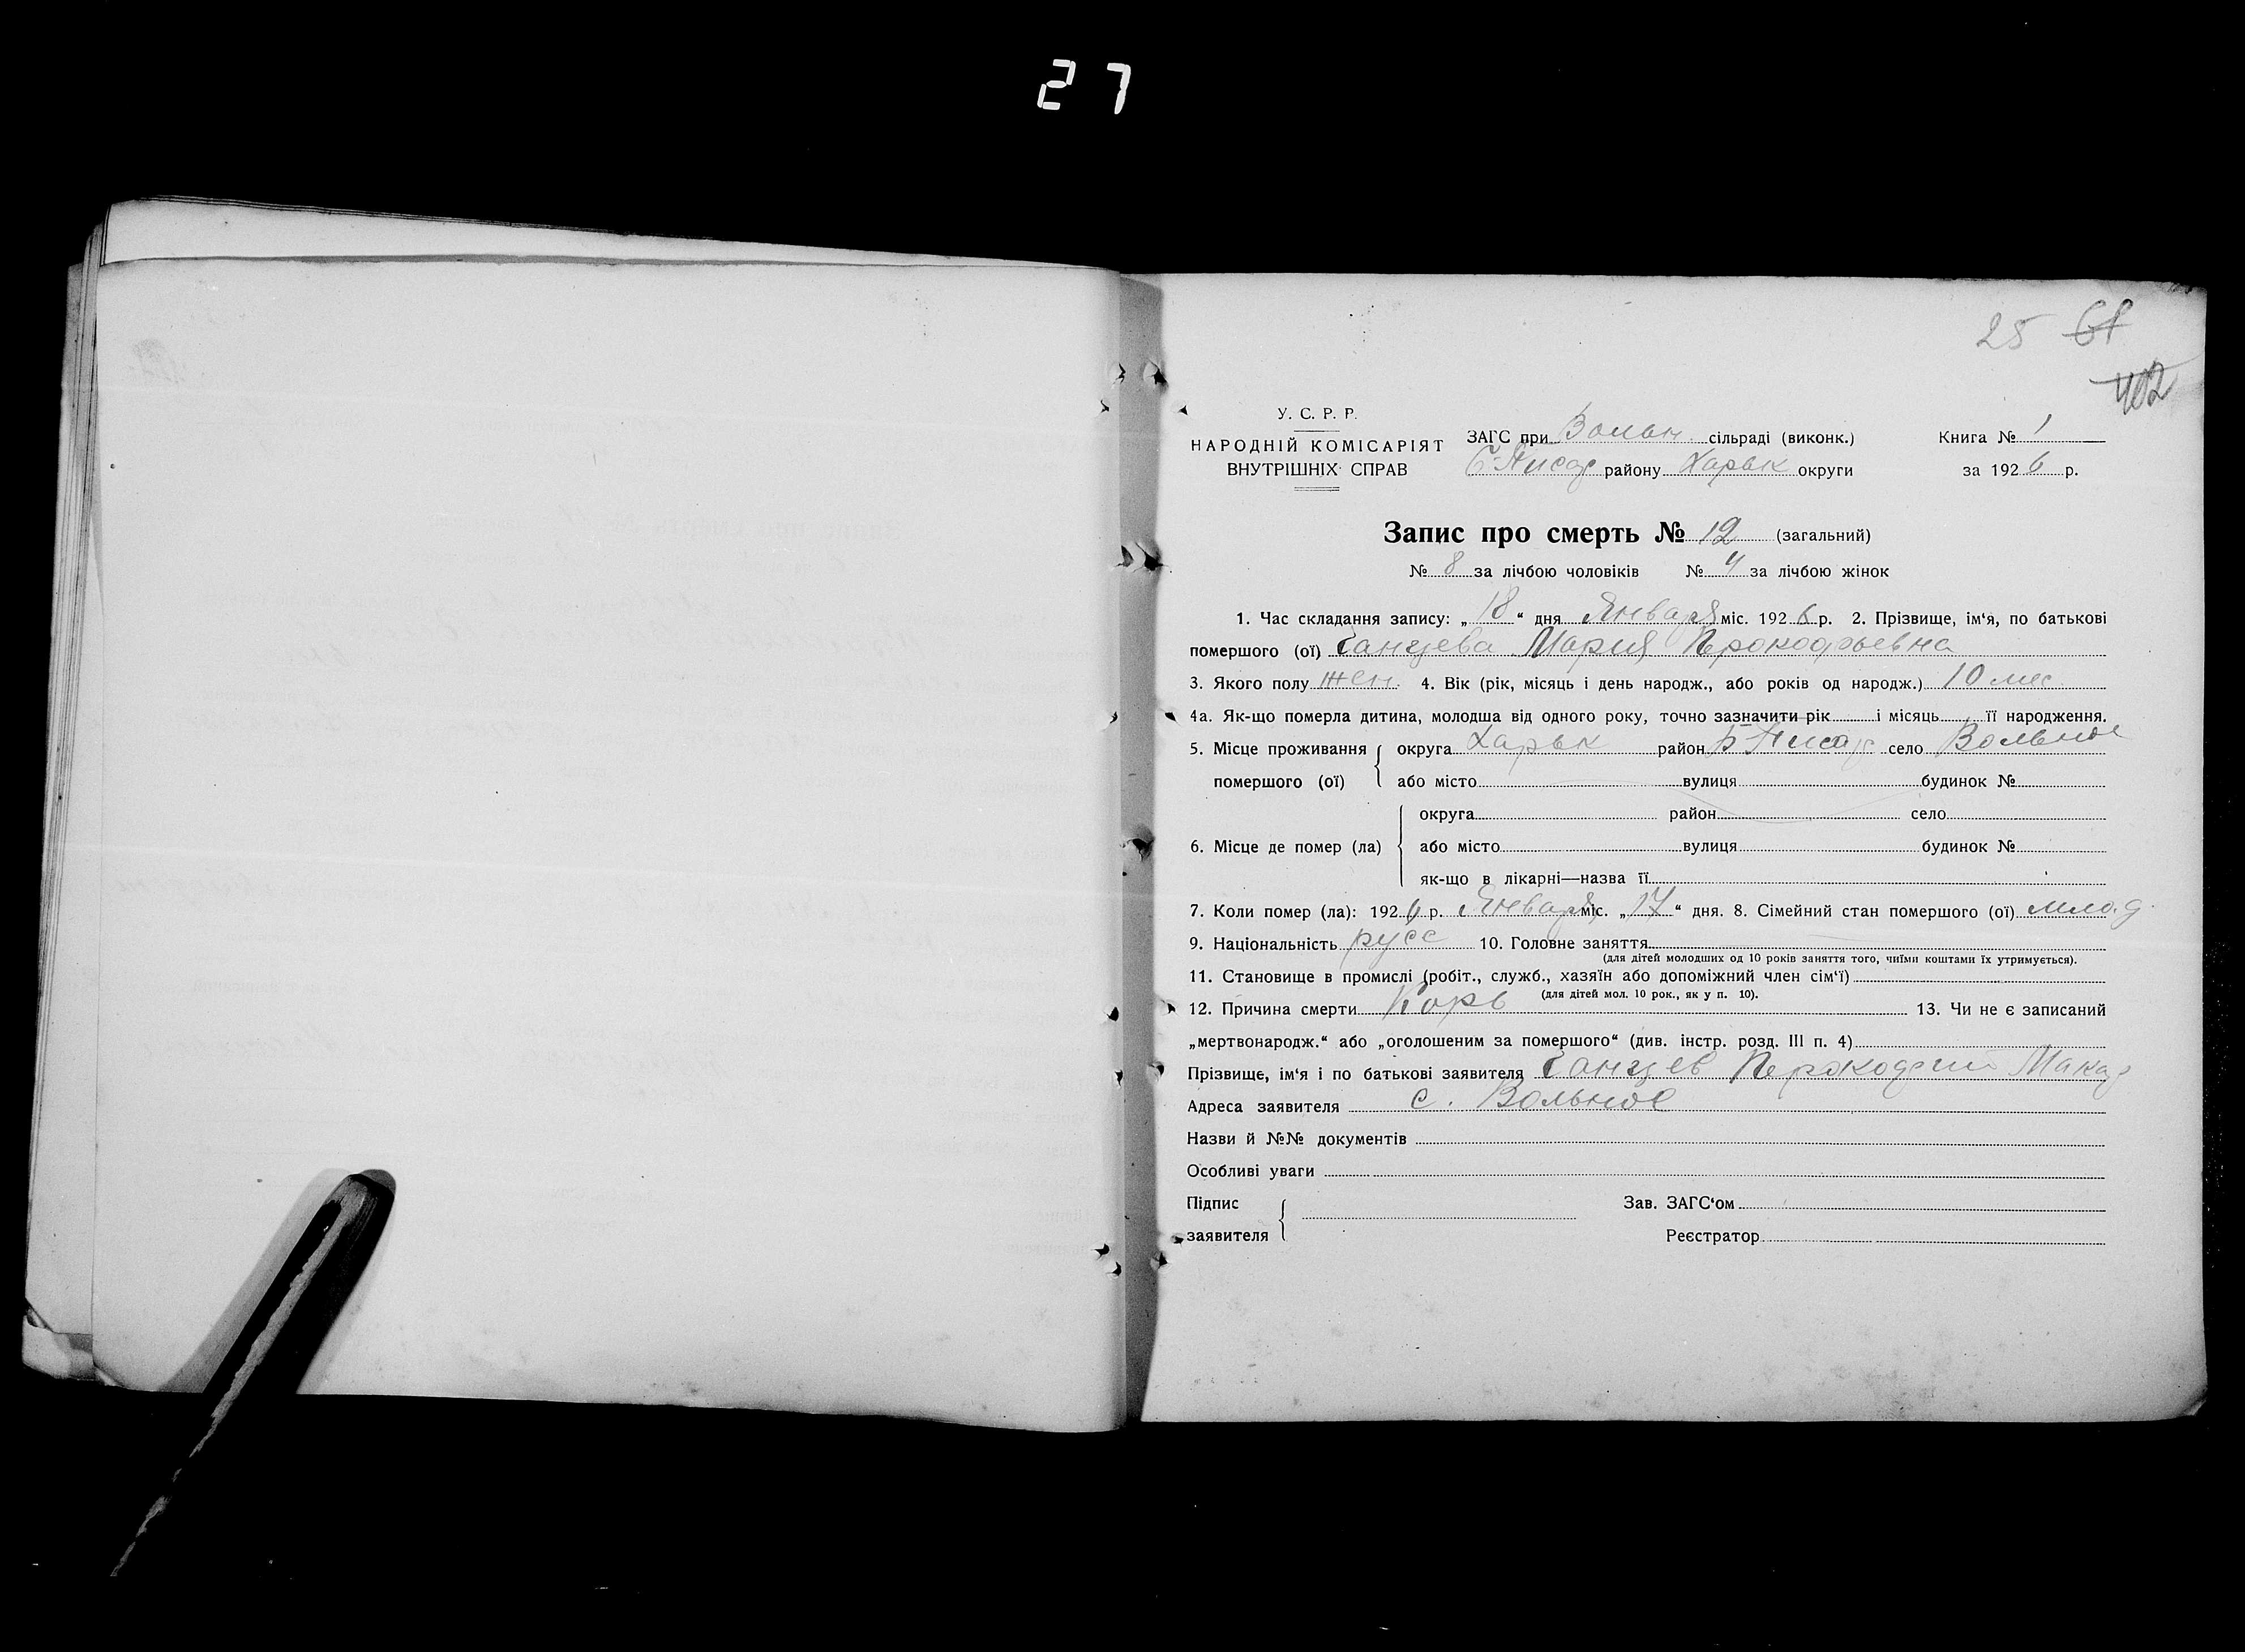 27
25 61
402
У. С. Р. Р.
НАРОДНІЙ КОМІСАРІЯТ
ВНУТРІШНІХ СПРАВ
ЗАГС при Вольн. сільраді (виконк.)
Б-Писар району Харьк округи
Книга № 1
за 1926 р.
Запис про смерть № 12 (загальний)
№ 8 за лічбою чоловіків № 4 за лічбою жінок
1. Час складання запису: „18“ дня Января міс. 1926 р. 2. Прізвище, ім‘я, по батькові
помершого (ої) Ганцева Мария Прокофьевна
3. Якого полу жен. 4. Вік (рік, місяць і день народж., або років од народж.) 10 мес.
4а. Як-що померла дитина, молодша від одного року, точно зазначити рік і місяць її народження.
5. Місце проживання округа Харьк район Б Писар село Вольное
помершого (ої) або місто вулиця будинок №
округа район село
6. Місце де помер (ла) або місто вулиця будинок №
як-що в лікарні—назва її
7. Коли помер (ла): 1926 р. Января міс. „17“ дня. 8. Сімейний стан помершого (ої) млад.
9. Національність русс 10. Головне заняття
(для дітей молодших од 10 років заняття того, чиїми коштами їх утримується).
11. Становище в промислі (робіт., служб., хазяїн або допоміжний член сім‘ї)
(для дітей мол. 10 рок., як у п. 10).
12. Причина смерти Корь 13. Чи не є записаний
„мертвонародж.“ або „оголошеним за помершого“ (див. інстр. розд. III п. 4)
Прізвище, ім‘я і по батькові заявителя Ганцев Прокофий Макар
Адреса заявителя с. Вольное
Назви й №№ документів
Особливі уваги
Підпис
заявителя
Зав. ЗАГС‘ом
Реєстратор